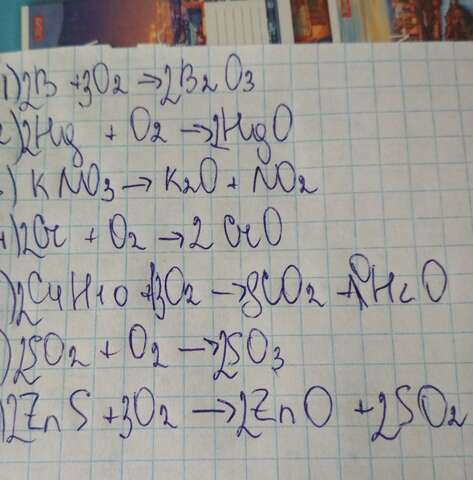 1) 2B + 3O2 → 2B2O3
2) 2Hg + O2 → 2HgO
) KNO3 → K2O + NO2
) 2Cr + O2 → 2CrO
) 2C4H10 + 13O2 → 8CO2 + 10H2O
) 2SO2 + O2 → 2SO3
) 2ZnS + 3O2 → 2ZnO + 2SO2